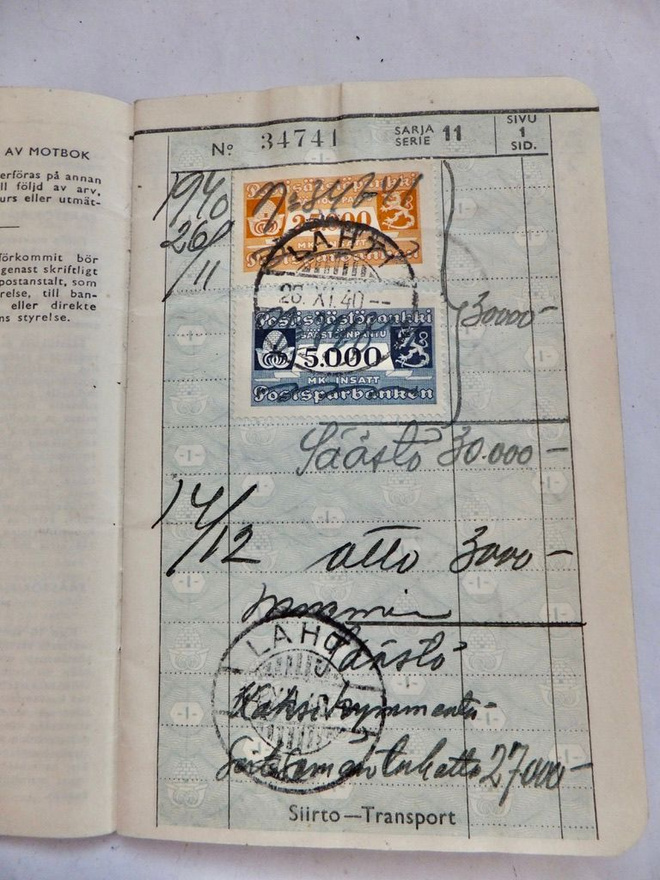 AV MOTBOK
erföras på annan
ll följd av arv,
urs eller utmät-
förkommit bör
genast skriftligt
postanstalt, som
relse, till ban-
eller direkte
ns styrelse.
Nº 34741
SARJA
SERIE 11
SIVU
1
SID.
1940
26/11
25.000
LAHTI
26.XI.40
Postisäästöpankki
SÄÄSTÖÖNPANTU
5.000
MK INSATT
Postsparbanken
30000-
Säästö 30.000-
14/12 otto 3000-
LAHTI
Säästö
Kaksikymmentä-
Seitsemäntuhatta 27000-
Siirto—Transport